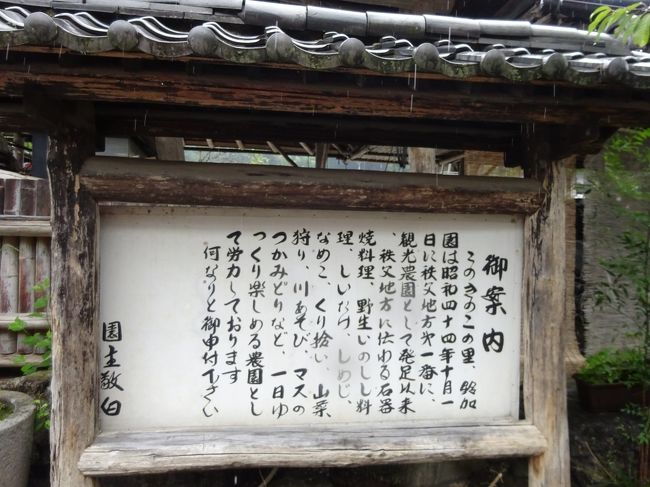 御案内
このきのこの里、鈴加
園は昭和四十四年十月一
日に秩父地方オ一番に、
観光農園として発足以来
、秩父地方に伝わる石器
焼料理、野生いのしし料
理、しいたけ、しめじ、
なめこ、くり拾い、山菜
狩り、川あそび、マスの
つかみどりなど、一日ゆ
っくり楽しめる農園とし
て労力しております
何なりと御申付下さい
園主敬白